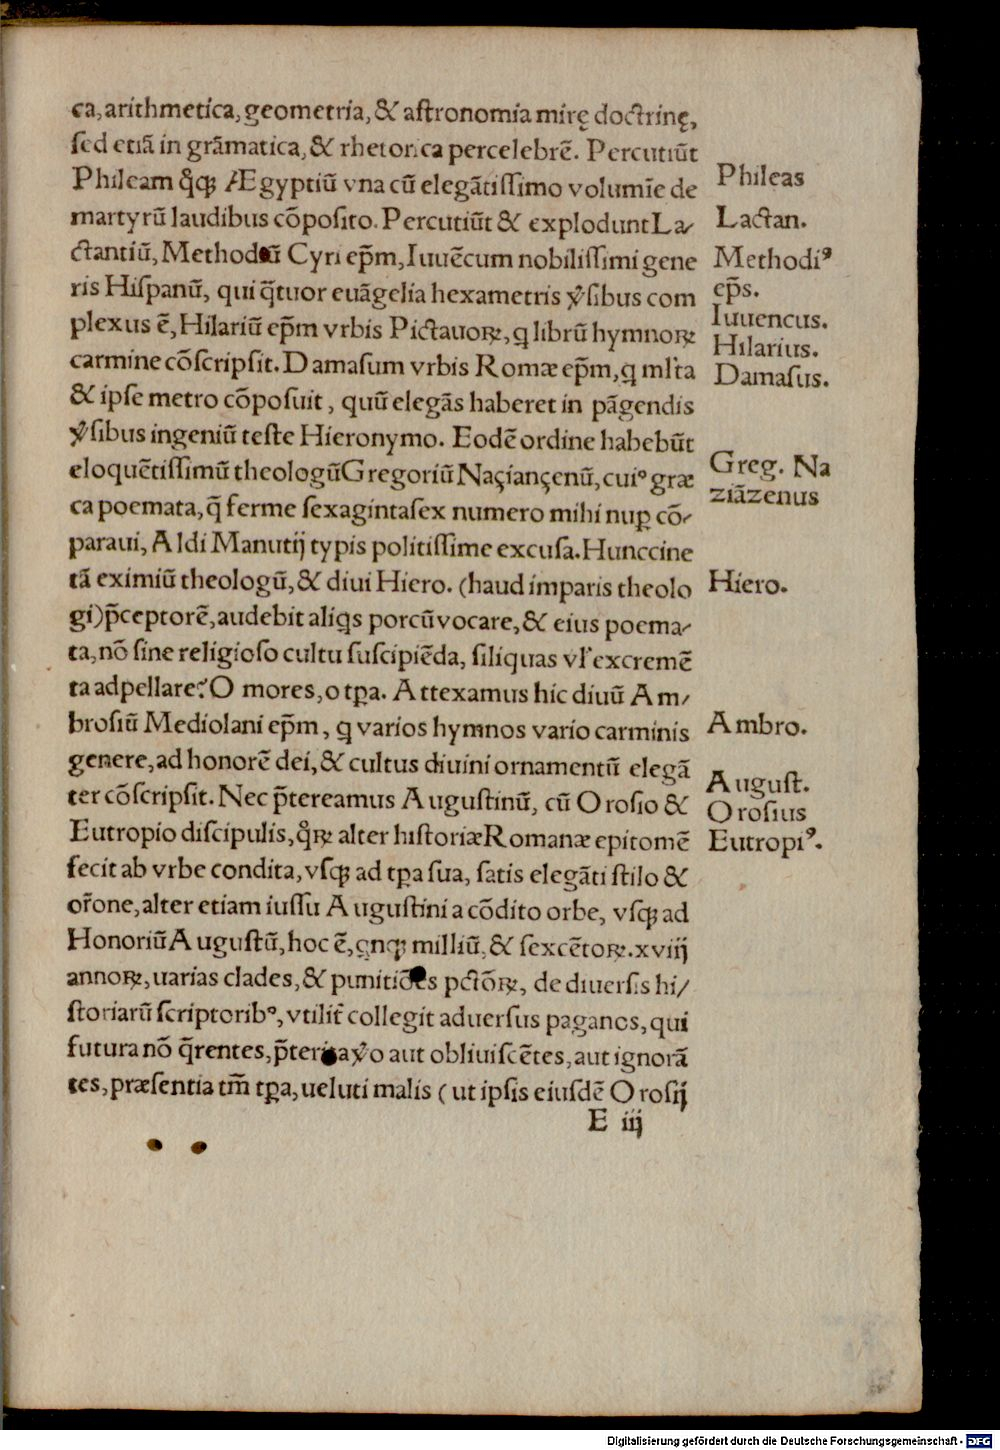 ca, arithmetica, geometria, & aſtronomia mirę doctrinę,
ſed etiã in grãmatica, & rhetorica percelebrẽ. Percutiũt
Phileam qͦꝗ Ægyptiũ vna cũ elegãtiſſimo volumĩe de
martyrũ laudibus cõpoſito. Percutiũt & explodunt La⸗
ctantiũ, Methodiũ Cyri ep̃m, Iuuẽcum nobiliſſimi gene
ris Hiſpanũ, qui q̃tuor euãgelia hexametris ꝟſibus com
plexus ẽ, Hilariũ ep̃m vrbis Pictauoꝝ, ꝗ librũ hymnoꝝ
carmine cõſcripſit. Damaſum vrbis Romæ ep̃m, ꝗ ml'ta
& ipſe metro cõpoſuit, quũ elegãs haberet in pãgendis
ꝟſibus ingeniũ teſte Hieronymo. Eodẽ ordine habebũt
eloquẽtiſſimũ theologũ Gregoriũ Naçiançenũ, cuiꝰ græ
ca poemata, q̃ ferme ſexagintaſex numero mihi nuꝑ cõ⸗
paraui, Aldi Manutij typis politiſſime excuſa. Hunccine
tã eximiũ theologũ, & diui Hiero. (haud imparis theolo
gi) p̃ceptorẽ, audebit aliꝗs porcũ vocare, & eius poema⸗
ta, nõ ſine religioſo cultu ſuſcipiẽda, ſiliquas vl' excremẽ
ta adpellare? O mores, o tꝑa. Attexamus hic diuũ Am⸗
broſiũ Mediolani ep̃m, ꝗ varios hymnos vario carminis
genere, ad honorẽ dei, & cultus diuini ornamentũ elegã
ter cõſcripſit. Nec p̃tereamus Auguſtinũ, cũ Oroſio &
Eutropio diſcipulis, qͦꝝ alter hiſtoriæ Romanæ epitomẽ
fecit ab vrbe condita, vſꝗ ad tꝑa ſua, ſatis elegãti ſtilo &
or̃one, alter etiam iuſſu Auguſtini a cõdito orbe, vſꝗ ad
Honoriũ Auguſtũ, hoc ẽ, ꝗnꝗ milliũ, & ſexcẽtoꝝ. xviij
annoꝝ, uarias clades, & punitiões pctõꝝ, de diuerſis hi⸗
ſtoriarũ ſcriptoribꝰ, vtilit̃ collegit aduerſus paganos, qui
futura nõ q̃rentes, p̃terita ꝟo aut obliuiſcẽtes, aut ignorã
tes, præſentia tm̃ tꝑa, ueluti malis ( ut ipſis eiuſdẽ Oroſij
E iij
Phileas
Lactan.
Methodiꝰ
ep̃s.
Iuuencus.
Hilarius.
Damaſus.
Greg. Na
ziãzenus
Hiero.
Ambro.
Auguſt.
Oroſius
Eutropiꝰ.
Digitalisierung gefördert durch die Deutsche Forschungsgemeinschaft - DFG